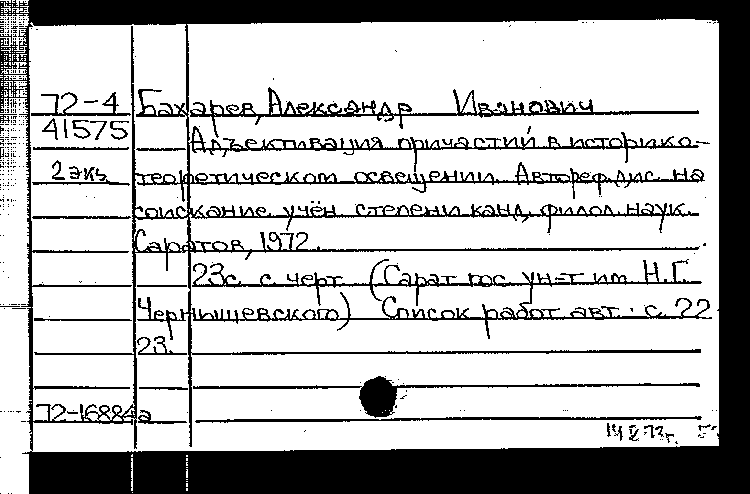 72-4 Бахарев, Александр Иванович
41575 Адъективация причастий в историко-
2 экз теоретическом освещении. Автореф. дис. на
соискание учён. степени канд. филол. наук.
Саратов, 1972.
23с. с черт. (Сарат. гос. ун-т им. Н.Г.
Чернышевского) Список работ авт.: с. 22-
23.
72-16884а